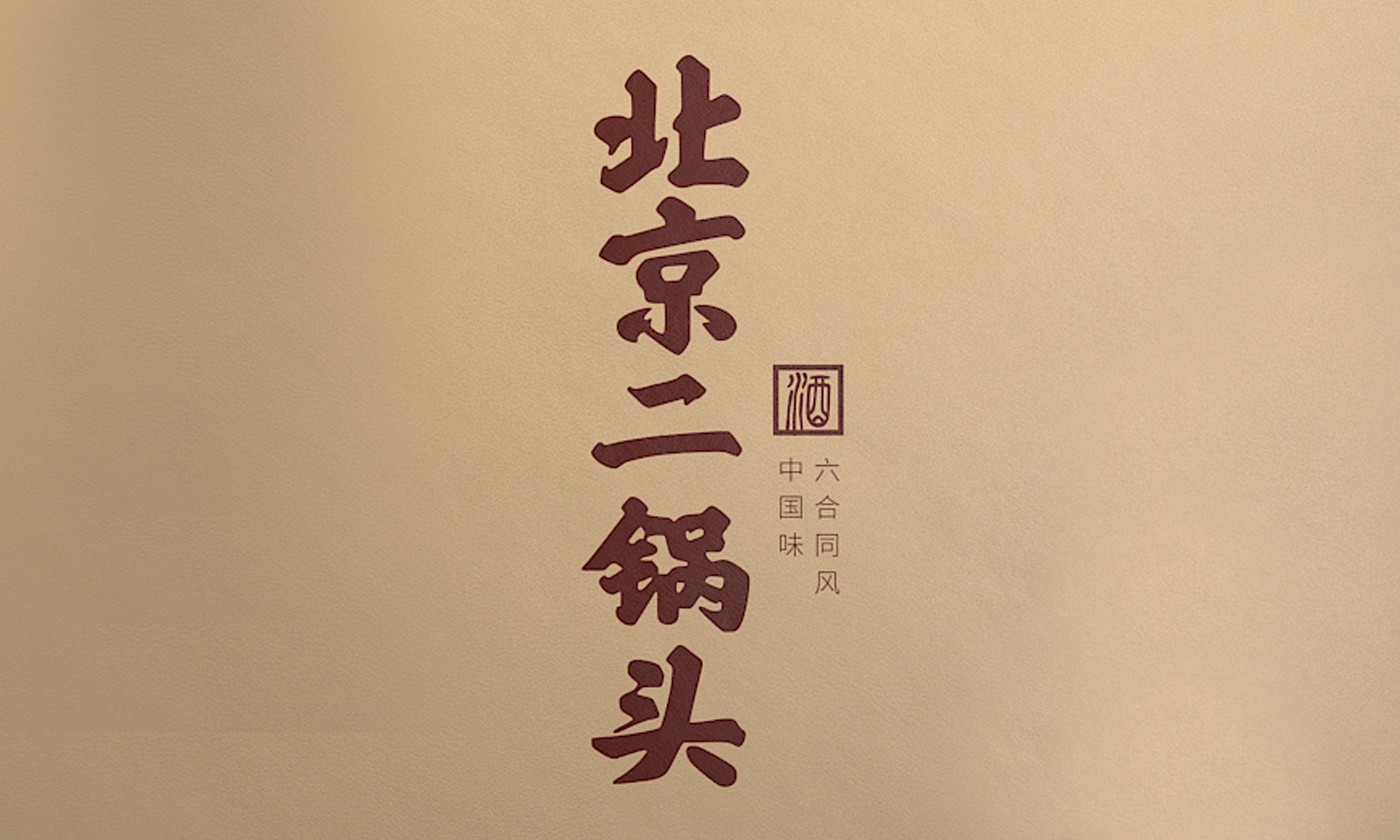 北京二锅头
酒
六合同风
中国味